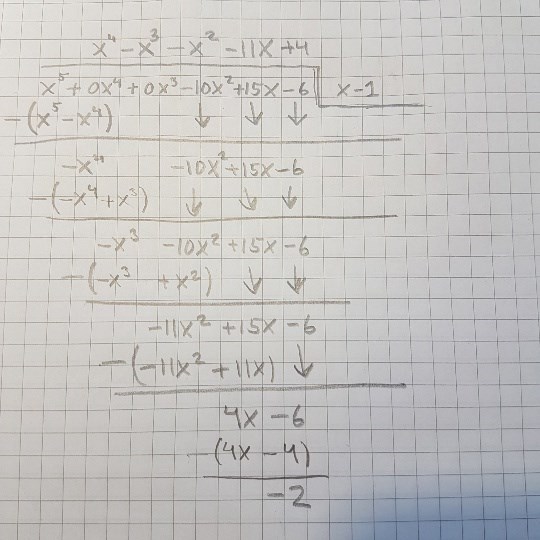 x⁴ - x³ - x² - 11x + 4
x⁵ + 0x⁴ + 0x³ - 10x² + 15x - 6 | x - 1
- (x⁵ - x⁴) ↓ ↓ ↓
- x⁴ - 10x² + 15x - 6
- (-x⁴ + x³) ↓ ↓ ↓
- x³ - 10x² + 15x - 6
- (-x³ + x²) ↓ ↓
- 11x² + 15x - 6
- (-11x² + 11x) ↓
4x - 6
- (4x - 4)
- 2